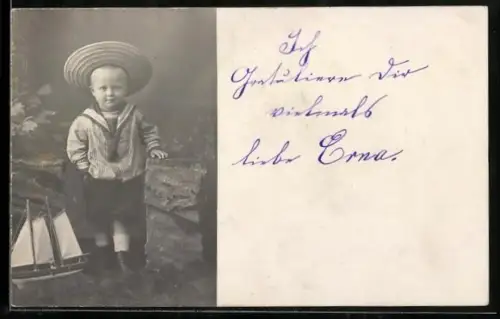 Ich
Gratuliere Dir
vielmals
liebe Erna.